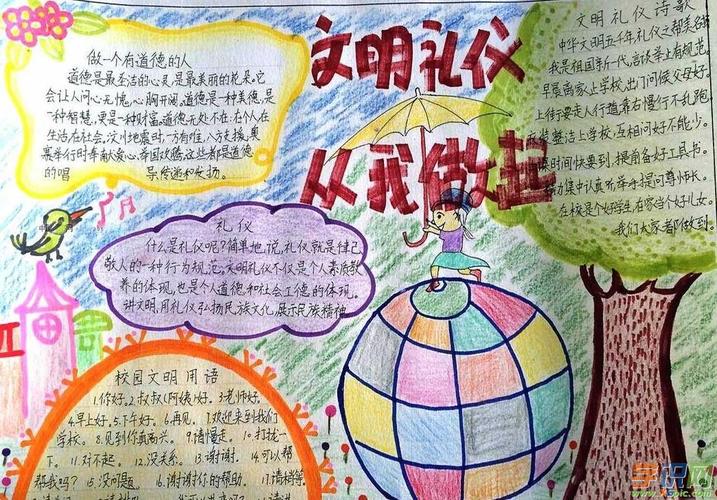 文明礼仪
从我做起
做一个有道德的人
道德是最圣洁的心灵,是最美丽的花朵。它
会让人问心无愧,心胸开阔,道德是一种美德,是
一种智慧,更是一种财富,道德无处不在,在个人在
生活在社会,汶川地震时,一方有难,八方支援,奥
运举行时奉献爱心,举国欢腾,这些都是道德
的唱
礼仪
什么是礼仪呢?简单地说,礼仪就是律己
敬人的一种行为规范,文明礼仪不仅是个人素质教
养的体现,也是个人道德和社会公德的体现。
讲文明,用礼仪弘扬民族文化,展示民族精神
校园文明用语
1.你好。2.叔叔(阿姨)好。3.老师好。
4.早上好。5.下午好。6.再见。7.欢迎来到我们
学校。8.见到你真高兴。9.请慢走。10.打扰一
下。11.对不起。12.没关系。13.谢谢。14.可以帮
帮我吗?15.没问题。16.谢谢你的帮助。17.请稍等。
文明礼仪诗歌
中华文明五千年,礼仪之帮美名
我是祖国新一代,言谈举止有规范。
早晨离家上学校,出门问候父母好。
上街要走人行道,靠右慢行不乱跑
整洁上学校,互相问好不能少。
课时间快要到,提前备好工具书。
力集中认真听,举手提问尊师长。
在校是个好学生,在家当个好儿女。
我们大家都做到。
学识网